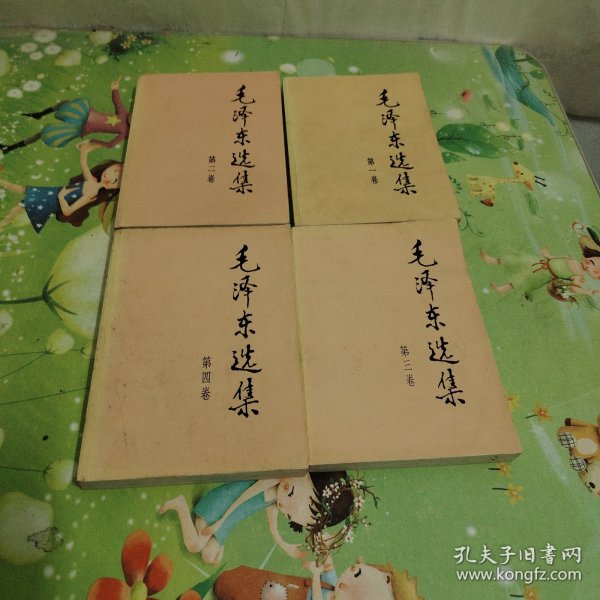 毛泽东选集
第二卷
毛泽东选集
第一卷
毛泽东选集
第四卷
毛泽东选集
第三卷
孔夫子旧书网
www.kongfz.com